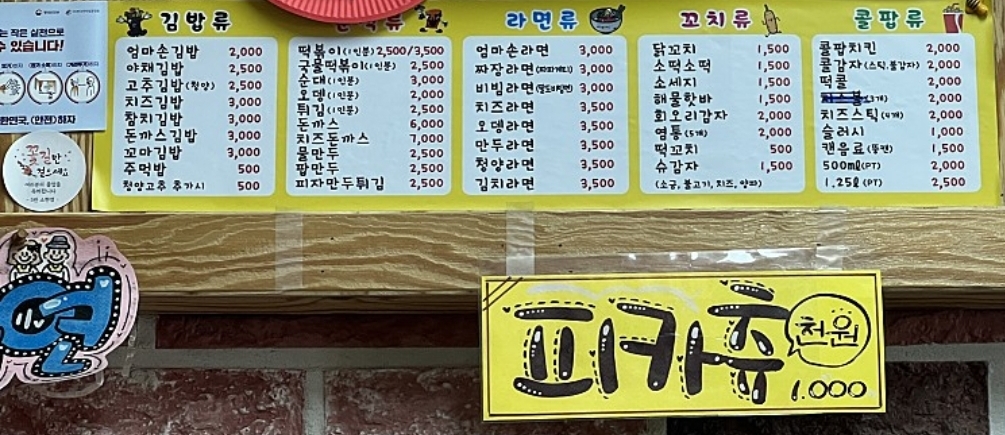 는 작은 실천으로
수 있습니다!
한민국, (안전)하자
꽃길만
걸으세요
김밥류
엄마손김밥 2,000
야채김밥 2,500
고추김밥(청양) 2,500
치즈김밥 3,000
참치김밥 3,000
돈까스김밥 3,000
꼬마김밥 3,000
주먹밥 500
청양고추 추가시 500
떡볶이(1인분) 2,500/3,500
국물떡볶이(1인분) 2,500
순대(1인분) 3,000
오뎅(1인분) 2,000
튀김(1인분) 2,500
돈까스 6,000
치즈돈까스 7,000
물만두 2,500
팝만두 2,500
피자만두튀김 2,500
라면류
엄마손라면 3,000
짜장라면(짜파게티) 3,000
비빔라면(팔도비빔면) 3,000
치즈라면 3,500
오뎅라면 3,500
만두라면 3,500
청양라면 3,500
김치라면 3,500
꼬치류
닭꼬치 1,500
소떡소떡 1,500
소세지 1,500
해물핫바 1,500
회오리감자 2,000
염통(5개) 2,000
떡꼬치 500
슈감자 1,500
(소금, 불고기, 치즈, 양파)
콜팝류
콜팝치킨 2,000
콜감자(스틱,불감자) 2,000
떡콜 2,000
2,000
치즈스틱(4개) 2,000
슬러시 1,000
캔음료(뚱캔) 1,500
500㎖(PT) 2,000
1.25ℓ(PT) 2,500
피카츄
천원
1.000